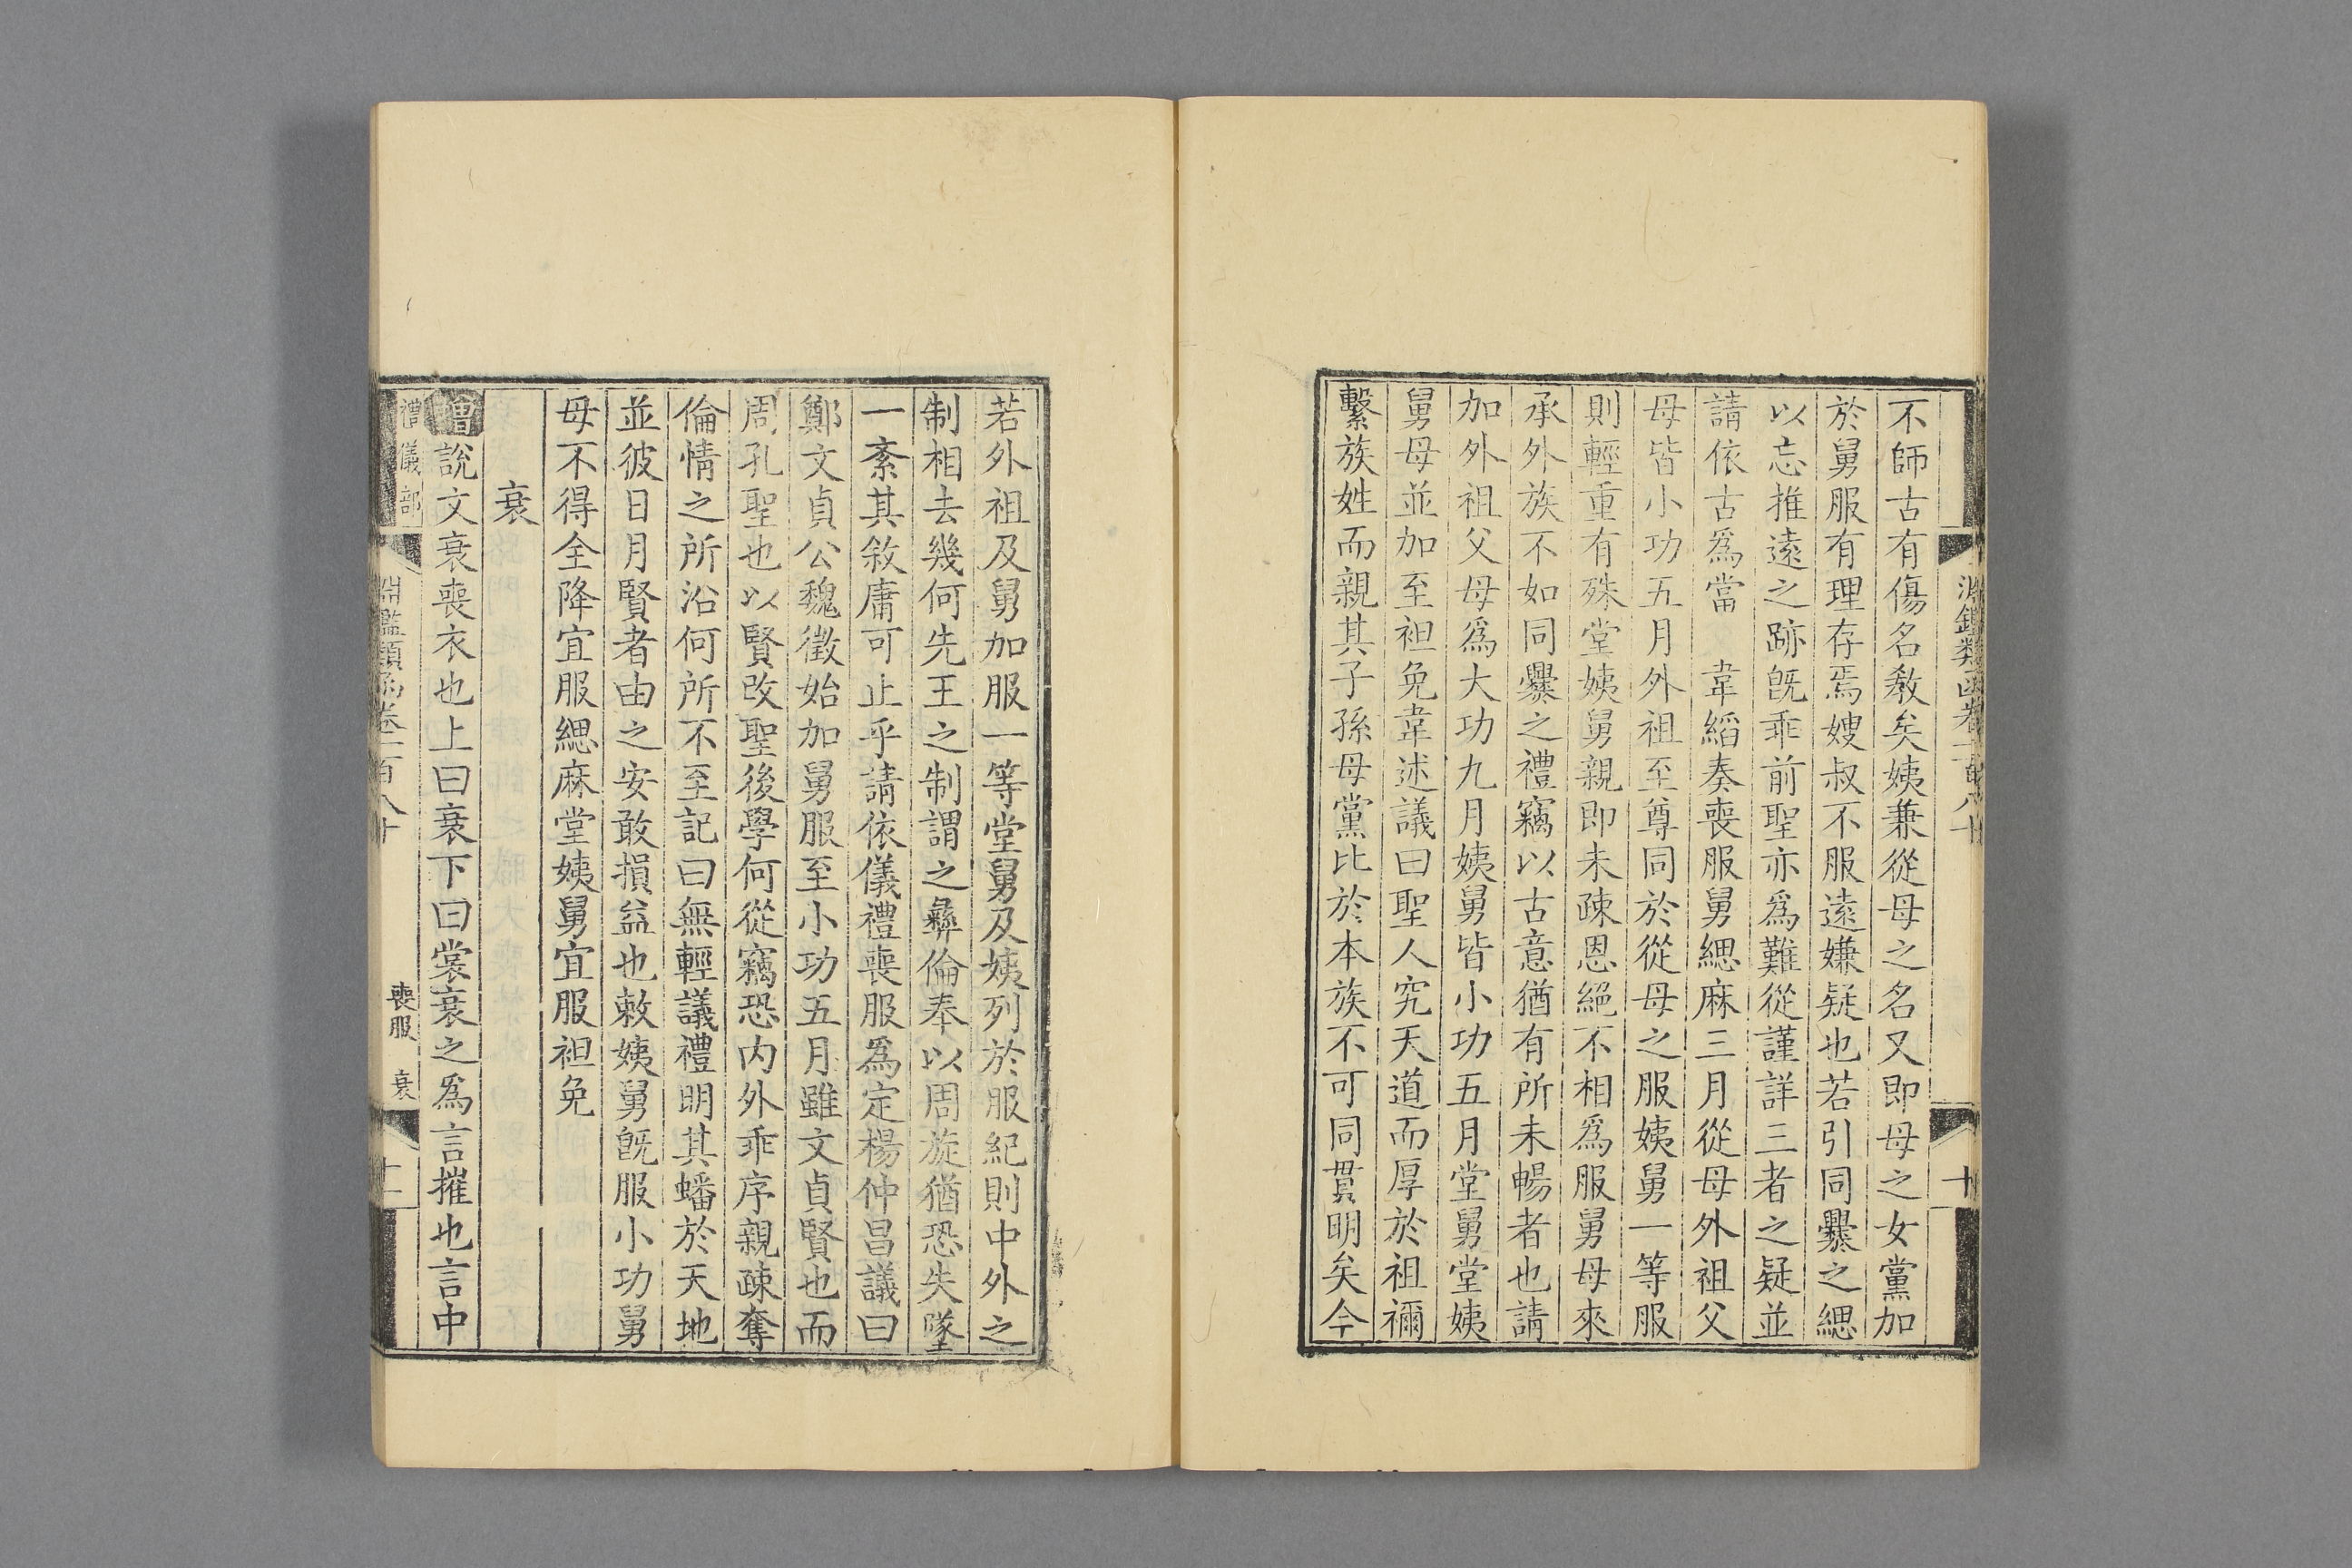 淵鑑類函卷一百八十
十
不師古有傷名敎矣姨兼從母之名又即母之女黨加
於舅服有理存焉嫂叔不服遠嫌疑也若引同爨之緦
以忘推遠之跡旣乖前聖亦爲難從謹詳三者之疑並
請依古爲當　韋縚奏喪服舅緦麻三月從母外祖父
母皆小功五月外祖至尊同於從母之服姨舅一等服
則輕重有殊堂姨舅親即未疎恩絕不相爲服舅母來
承外族不如同爨之禮竊以古意猶有所未暢者也請
加外祖父母爲大功九月姨舅皆小功五月堂舅堂姨
舅母並加至袒免韋述議曰聖人究天道而厚於祖禰
繫族姓而親其子孫母黨比於本族不可同貫明矣今
若外祖及舅加服一等堂舅及姨列於服紀則中外之
制相去幾何先王之制謂之彝倫奉以周旋猶恐失墜
一紊其敘庸可止乎請依儀禮喪服爲定楊仲昌議曰
鄭文貞公魏徵始加舅服至小功五月雖文貞賢也而
周孔聖也以賢改聖後學何從竊恐內外乖序親疎奪
倫情之所沿何所不至記曰無輕議禮明其蟠於天地
並彼日月賢者由之安敢損益也敕姨舅旣服小功舅
母不得全降宜服緦麻堂姨舅宜服袒免
衰
增說文衰喪衣也上曰衰下曰裳衰之爲言摧也言中
禮儀部
淵鑑類函卷一百八十
喪服　衰
十一